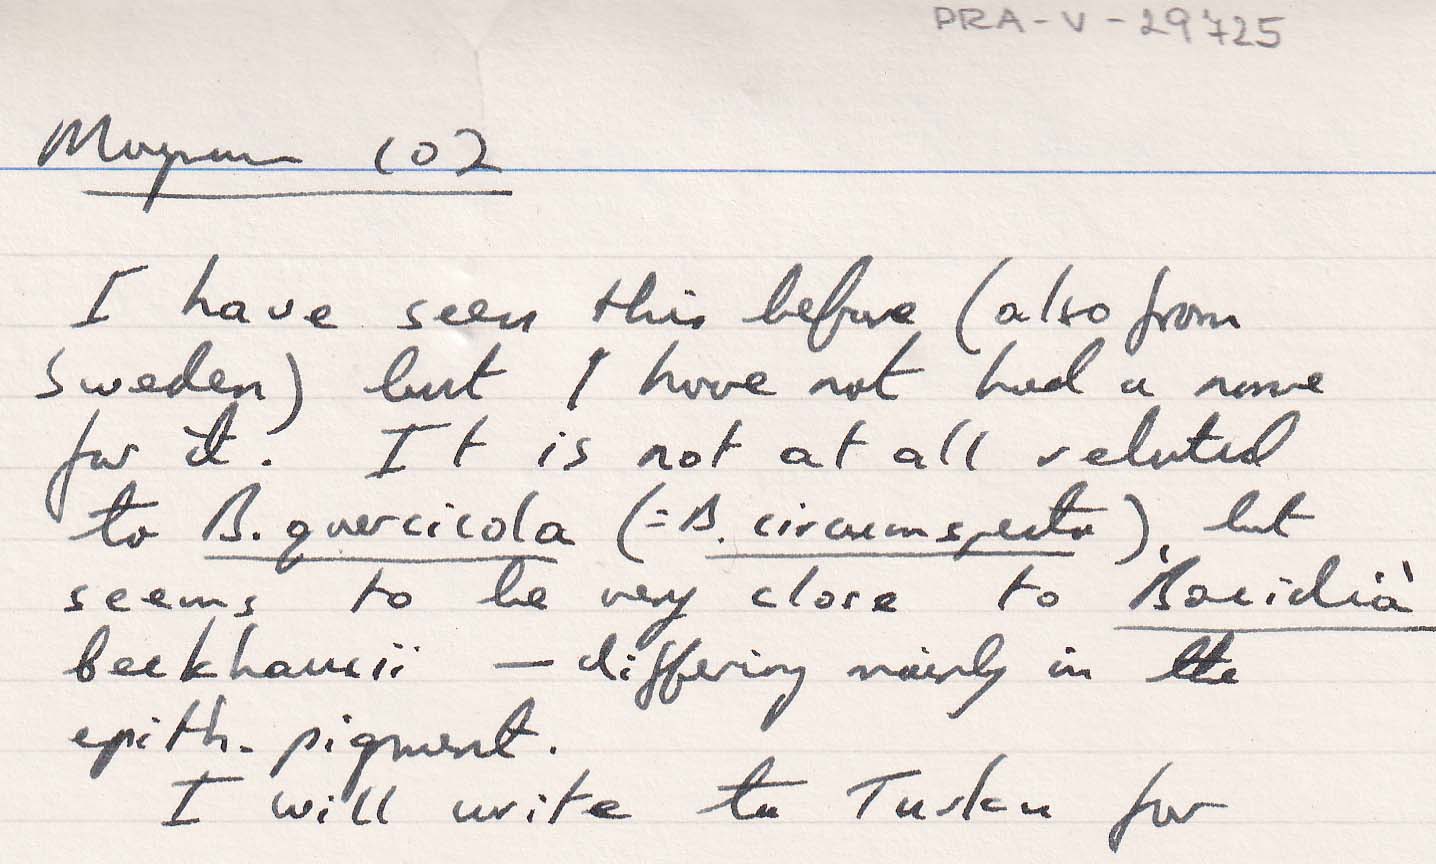 PRA-V-29725
Magnusson (o)
I have seen this before (also from
Sweden) but I have not had a name
for it. It is not at all related
to B. quercicola (= B. circumspecta), but
seems to be very close to 'Bacidia'
beckhausii — differing mainly in the
epith. pigment.
I will write to Turku for